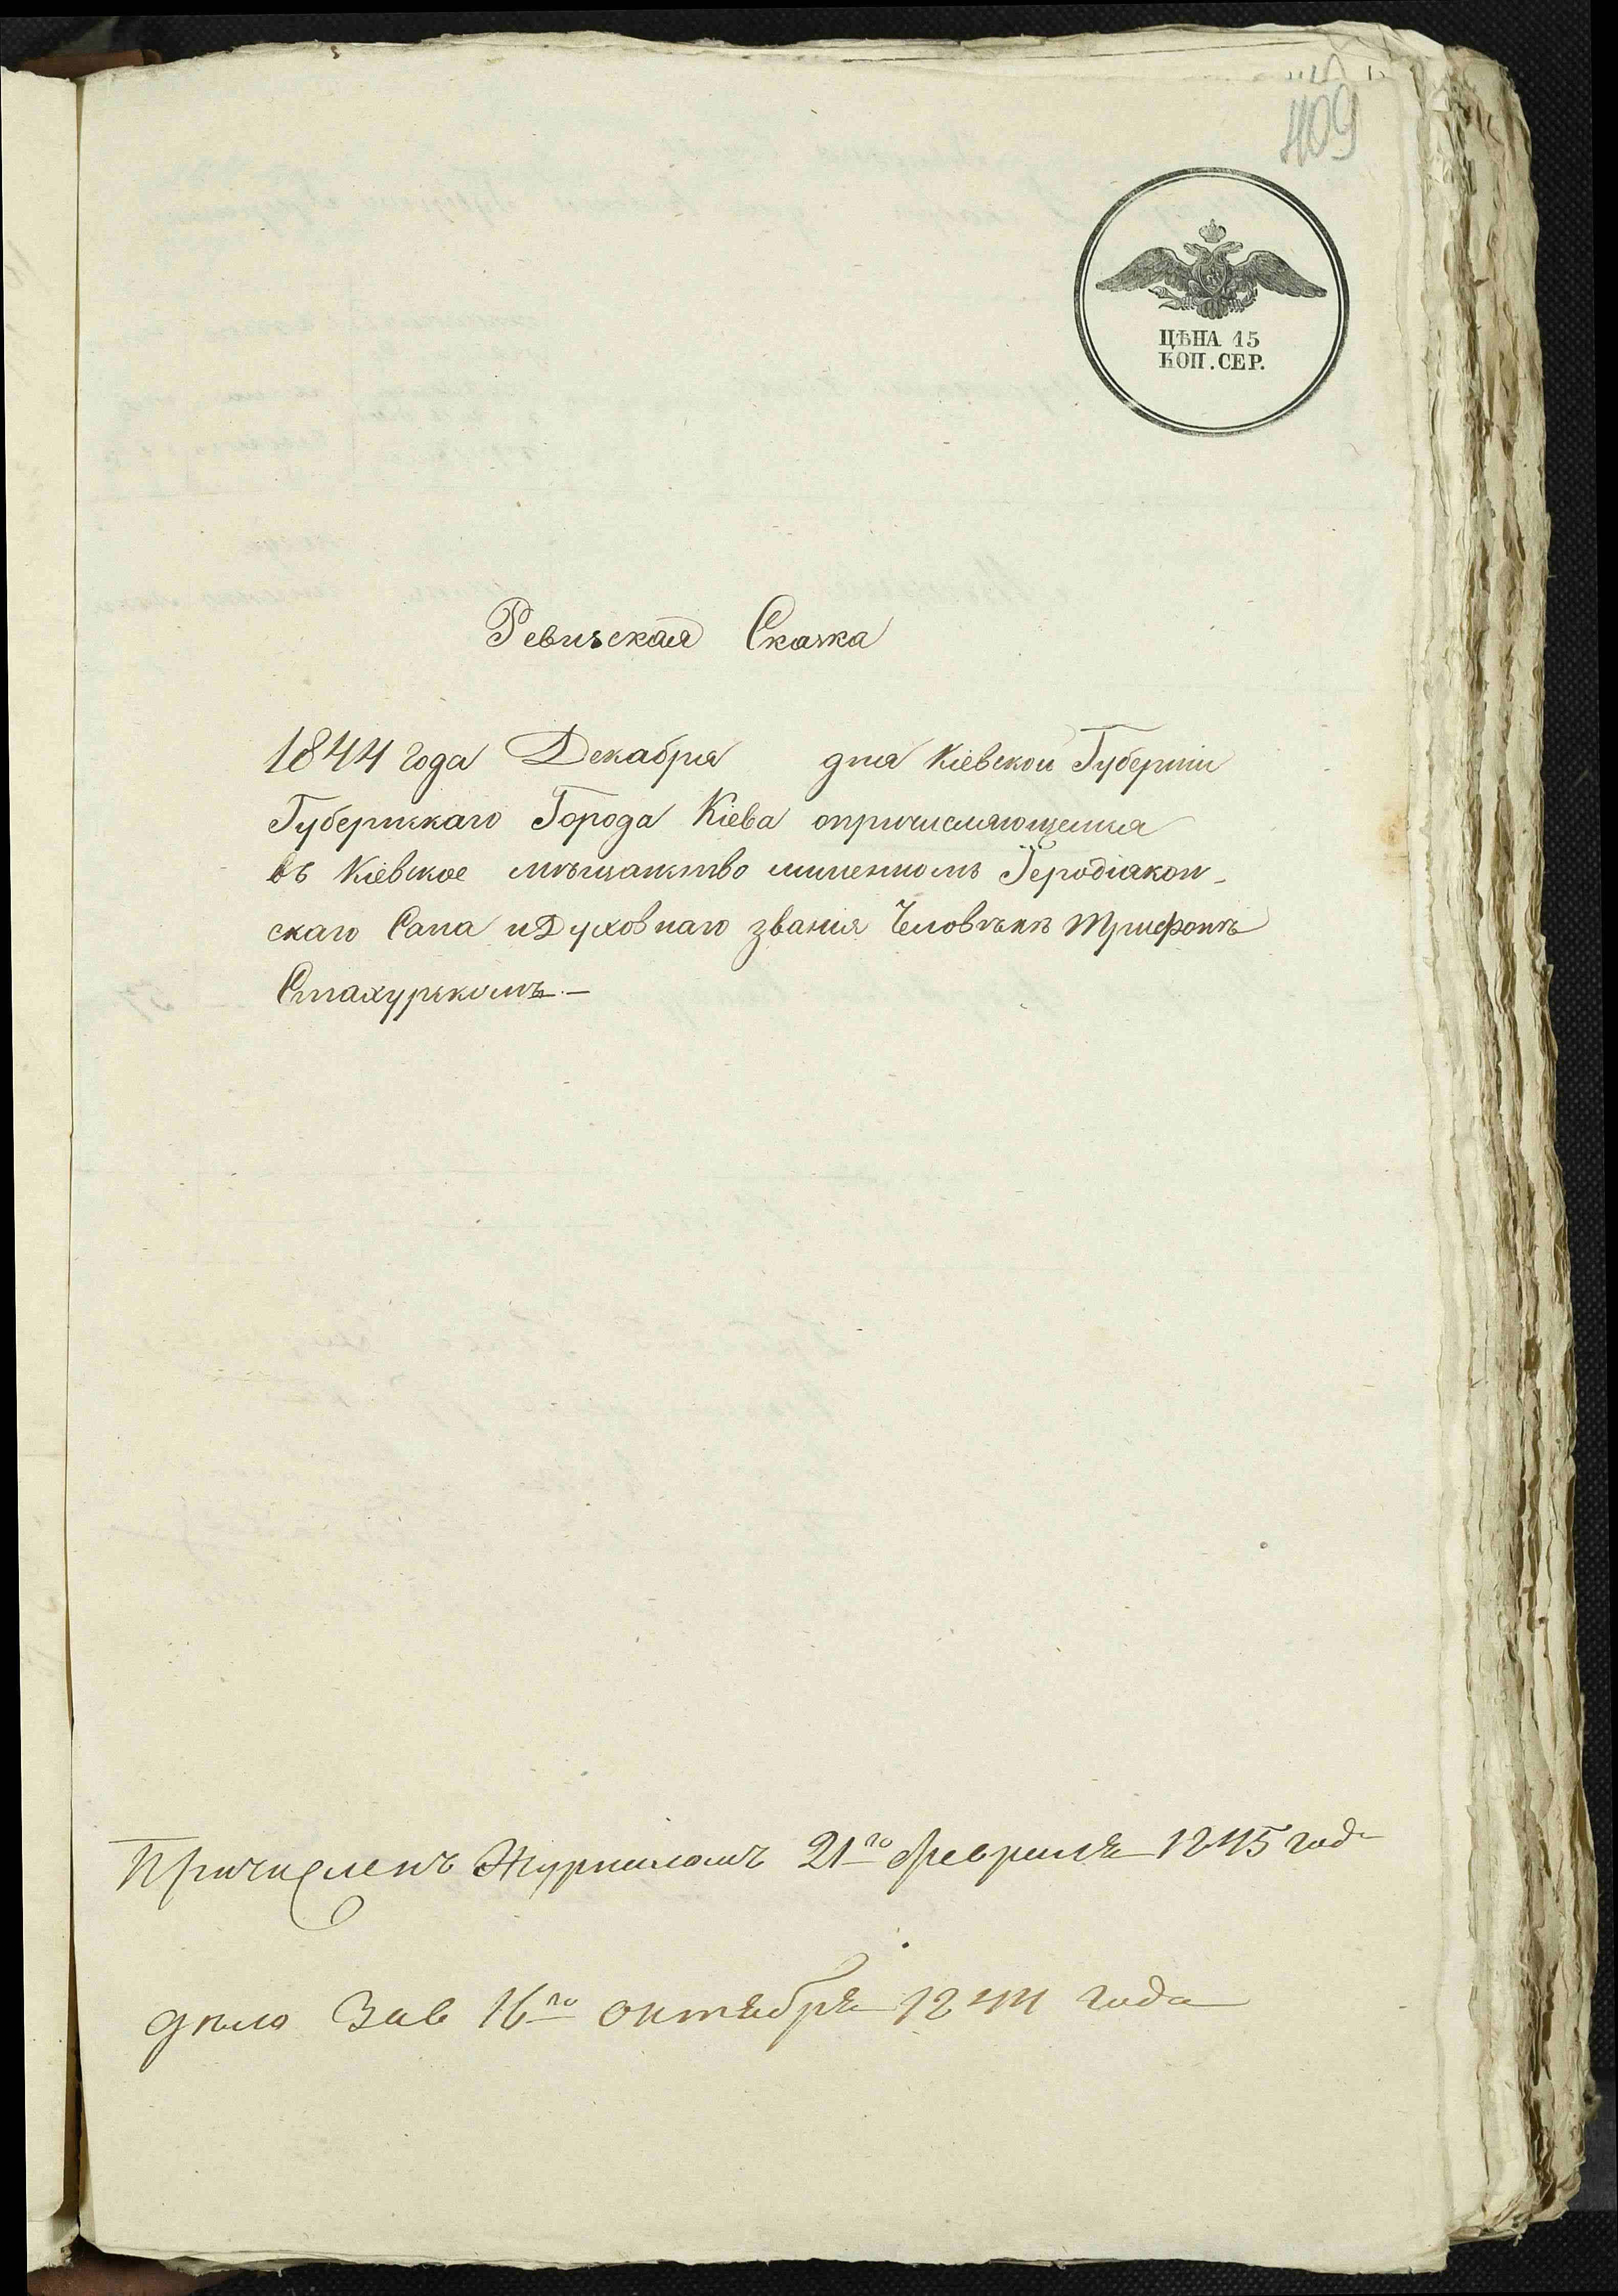 409
ЦѢНА 15
КОП. СЕР.
Ревизская Сказка
1844 года Декабря дня Кіевской Губерніи
Губернскаго Города Кіева опричисляющемся
въ Кіевское мѣщанство лишенномъ Іеродіакон-
скаго Сана и Духовнаго званія Человѣкѣ Трифонѣ
Стахурскомъ.—
Причисленъ Журналомъ 21го февраля 1845 года
дѣло Зав 16го октября 1844 года